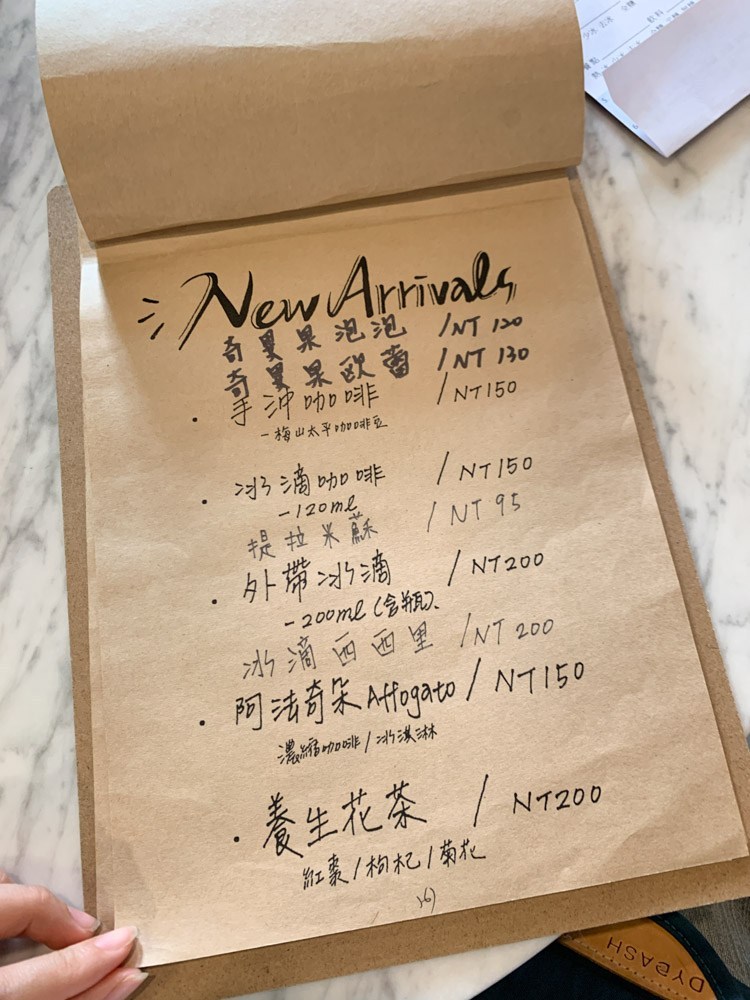 New Arrivals
奇異果泡泡 /NT 120
奇異果歐蕾 /NT 130
· 手沖咖啡 /NT150
-梅山太平咖啡豆
· 冰滴咖啡 /NT150
-120ml
提拉米蘇 /NT 95
· 外帶冰滴 /NT200
-200ml (含瓶)
冰滴西西里 /NT 200
· 阿法奇朵 Affogato / NT150
濃縮咖啡/冰淇淋
· 養生花茶 / NT200
紅棗/枸杞/菊花
DYDASH